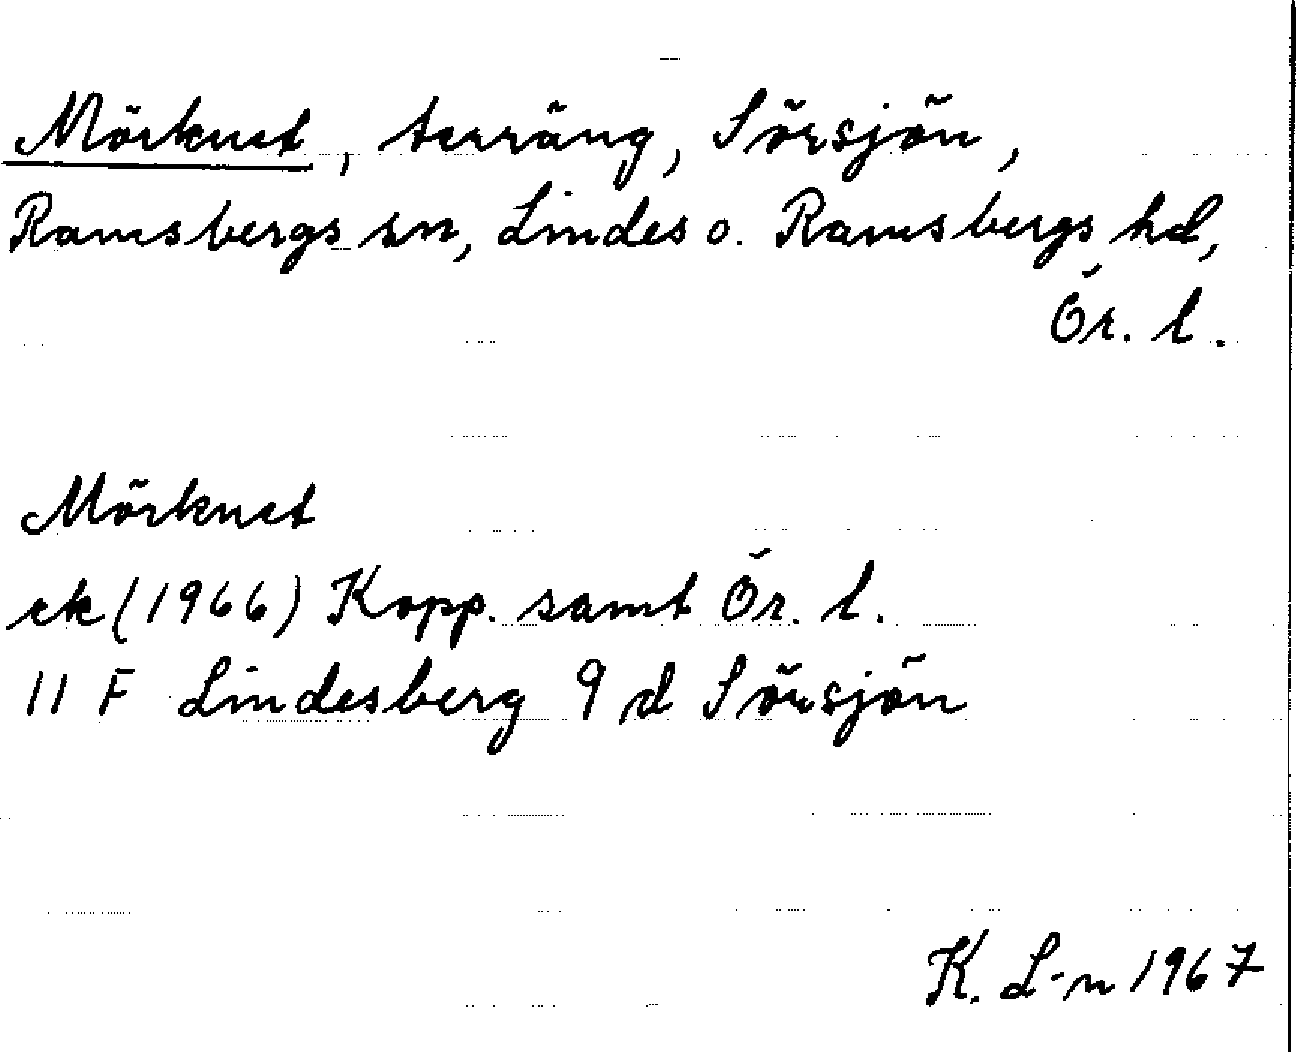 Mörknet, terräng, Sörsjön,
Ramsbergs sn, Lindes o. Ramsbergs hd,
Ör. l.
Mörknet
ek (1966) Kopp. samt Ör. l.
11 F Lindesberg 9 d Sörsjön
K. L-n 1967